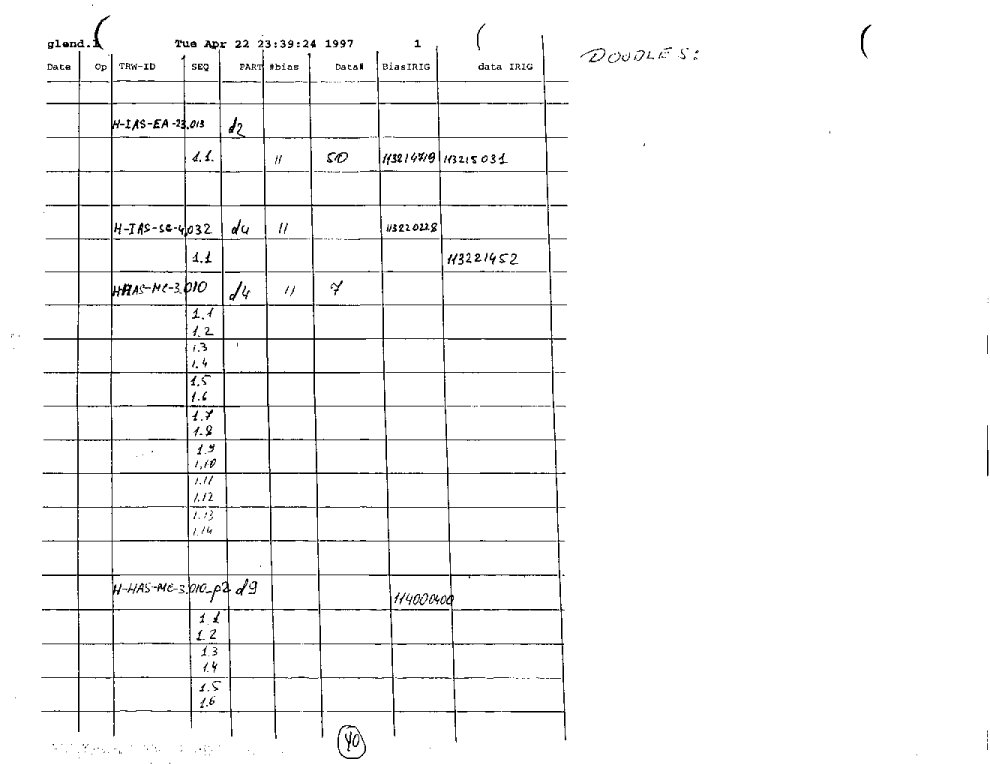 glend.1 Tue Apr 22 23:39:24 1997 1
DOUDLES:
Date Op TRW-ID SEQ PART #bias Data# BiasIRIG data IRIG
H-IAS-EA-23.013 d2
1.1. 11 50 113214719 113215031
H-IAS-SG-4.032 d4 11 113220228
1.1 113221452
HHAS-MC-3.010 d4 11 7
1.1
1.2
1.3
1.4
1.5
1.6
1.7
1.8
1.9
1.10
1.11
1.12
1.13
1.14
H-HAS-MC-3.010_p2 d9 114000400
1.1
1.2
1.3
1.4
1.5
1.6
40